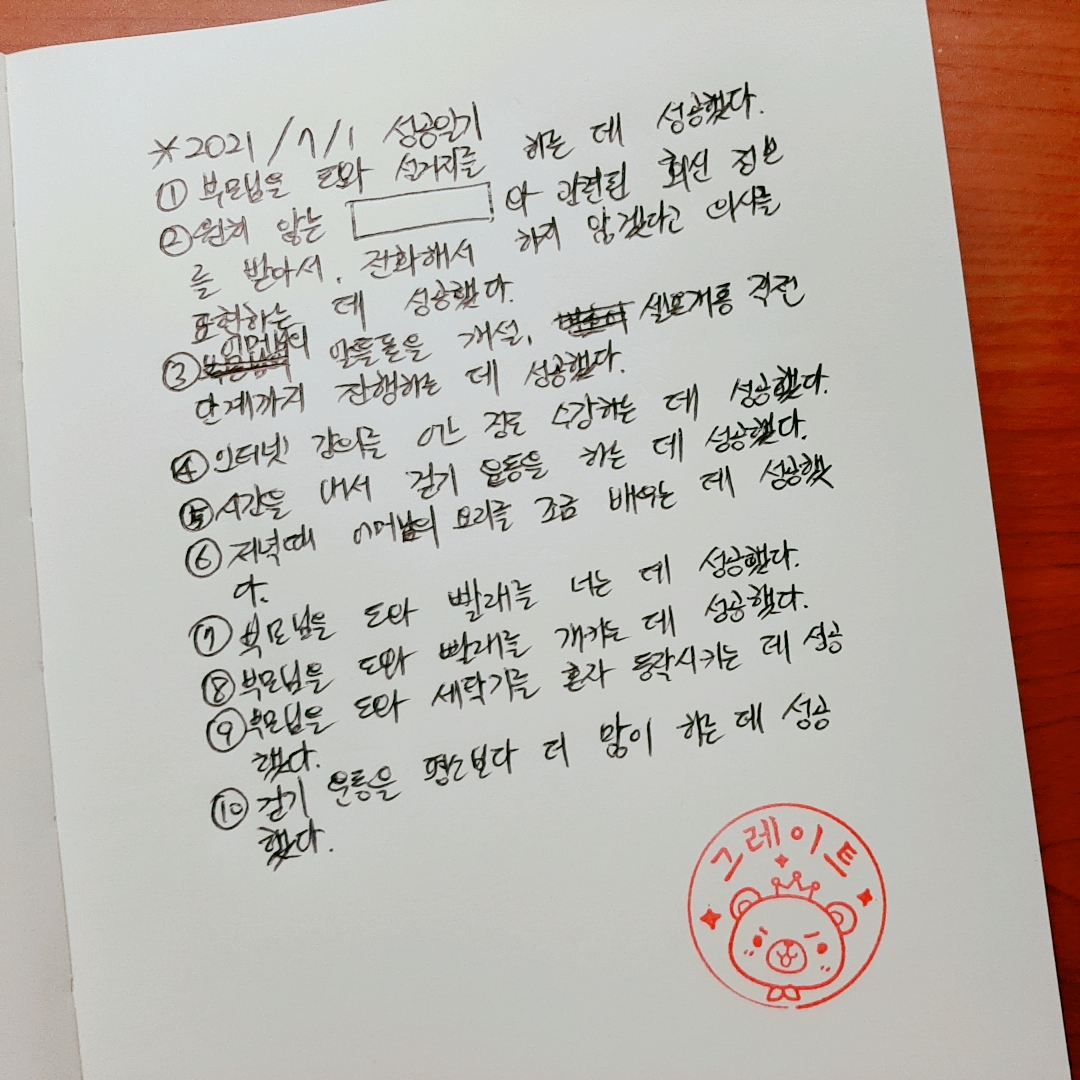 *2021/7/1 성공일기
① 부모님을 도와 설거지를 하는 데 성공했다.
② 원치 않는 와 관련된 회신 정보
를 받아서, 전화해서 하지 않겠다고 의사를
표현하는 데 성공했다.
③ 어머님의 알뜰폰을 개설, 셀프개통 직전
단계까지 진행하는 데 성공했다.
④ 인터넷 강의를 어느 정도 수강하는 데 성공했다.
⑤ 시간을 내서 걷기 운동을 하는 데 성공했다.
⑥ 저녁때 어머님의 요리를 조금 배우는 데 성공했
다.
⑦ 부모님을 도와 빨래를 너는 데 성공했다.
⑧ 부모님을 도와 빨래를 개키는 데 성공했다.
⑨ 부모님을 도와 세탁기를 혼자 동작시키는 데 성공
했다.
⑩ 걷기 운동을 평소보다 더 많이 하는 데 성공
했다.
그레이트